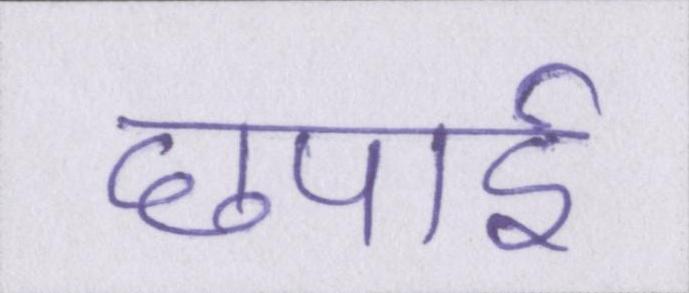 छपाई